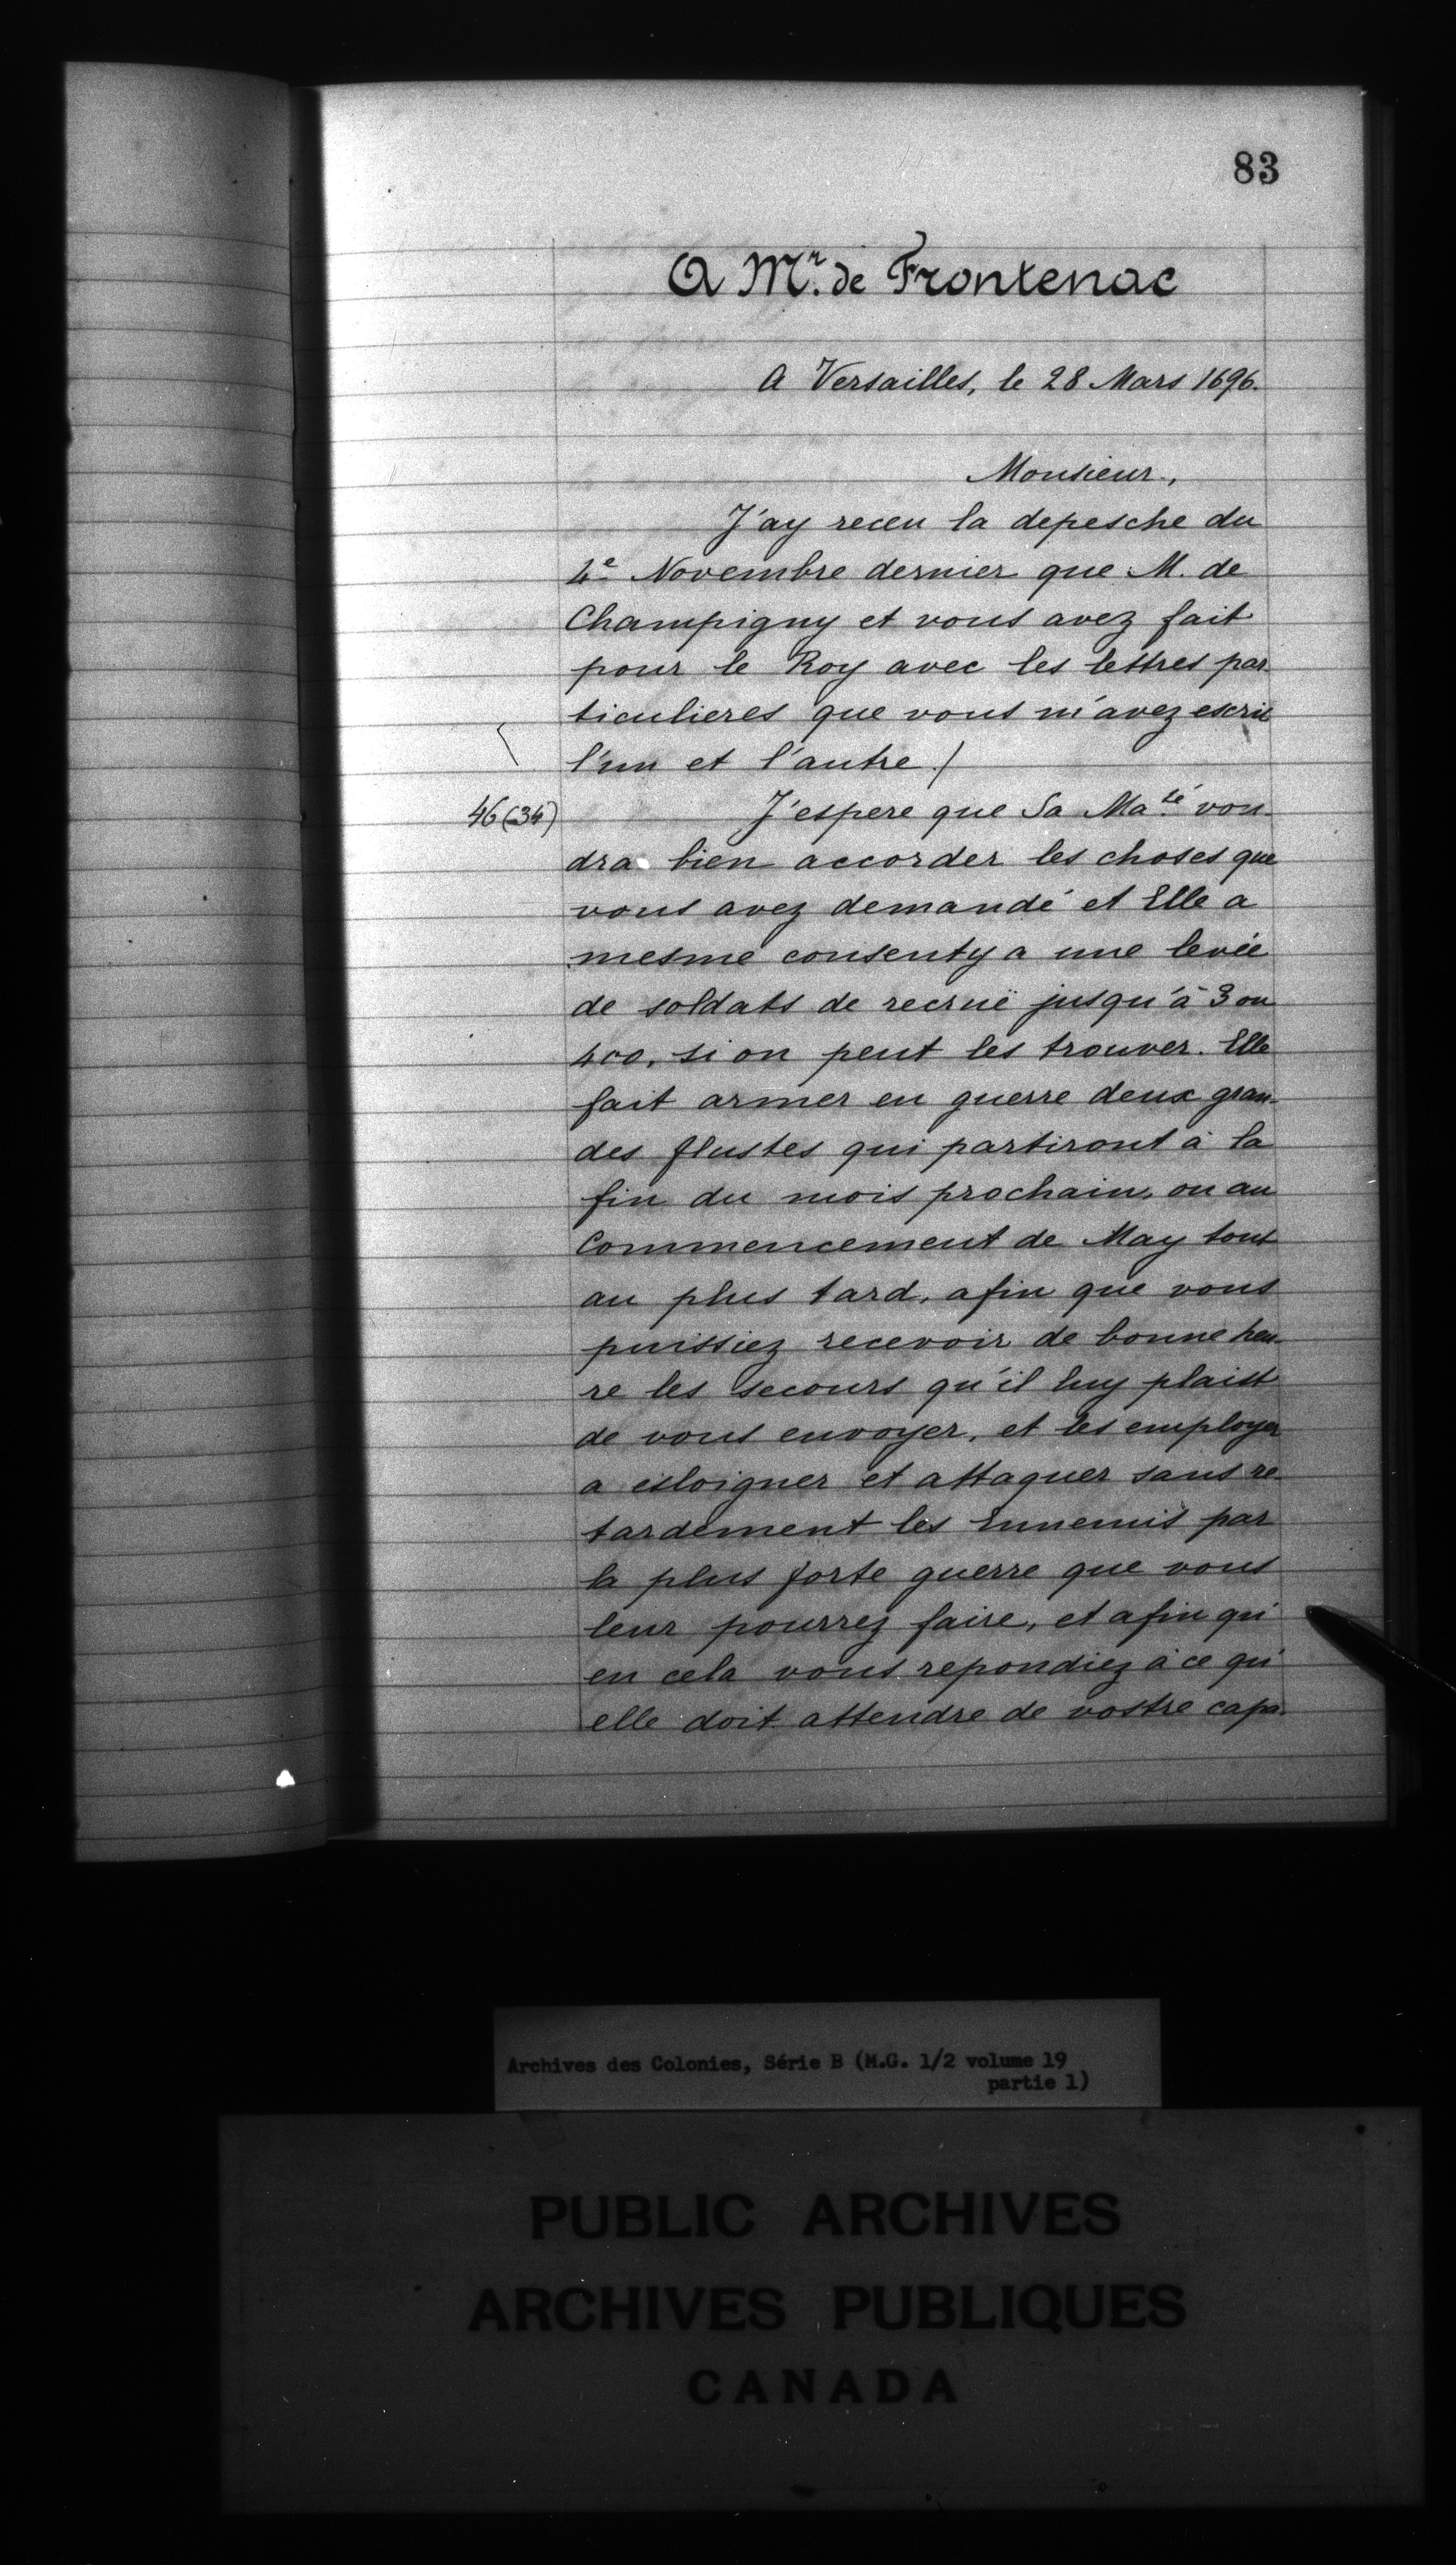 83
A Mr. de Frontenac
A Versailles, le 28 Mars 1696.
Monsieur,
J'ay receu la depesche du
4e Novembre dernier que M. de
Champigny et vous avez fait
pour le Roy avec les lettres par-
ticulieres que vous m'avez escrit
l'un et l'autre /
46 (34)
J'espere que Sa Maté vou-
dra bien accorder les choses que
vous avez demandé et Elle a
mesme consenty a une levée
de soldats de recruë jusqu'à 3 ou
400, si on peut les trouver. Elle
fait armer en guerre deux gran-
des flustes qui partiront à la
fin du mois prochain, ou au
Commencement de May tout
au plus tard, afin que vous
puissiez recevoir de bonne heu-
re les secours qu'il luy plaist
de vous envoyer, et les employer
a esloigner et attaquer sans re-
tardement les Ennemis par
la plus forte guerre que vous
leur pourrez faire, et afin qu'
en cela vous repondiez à ce qu'
elle doit attendre de vostre capa-
Archives des Colonies, Série B (M.G. 1/2 volume 19
partie 1)
PUBLIC ARCHIVES
ARCHIVES PUBLIQUES
CANADA